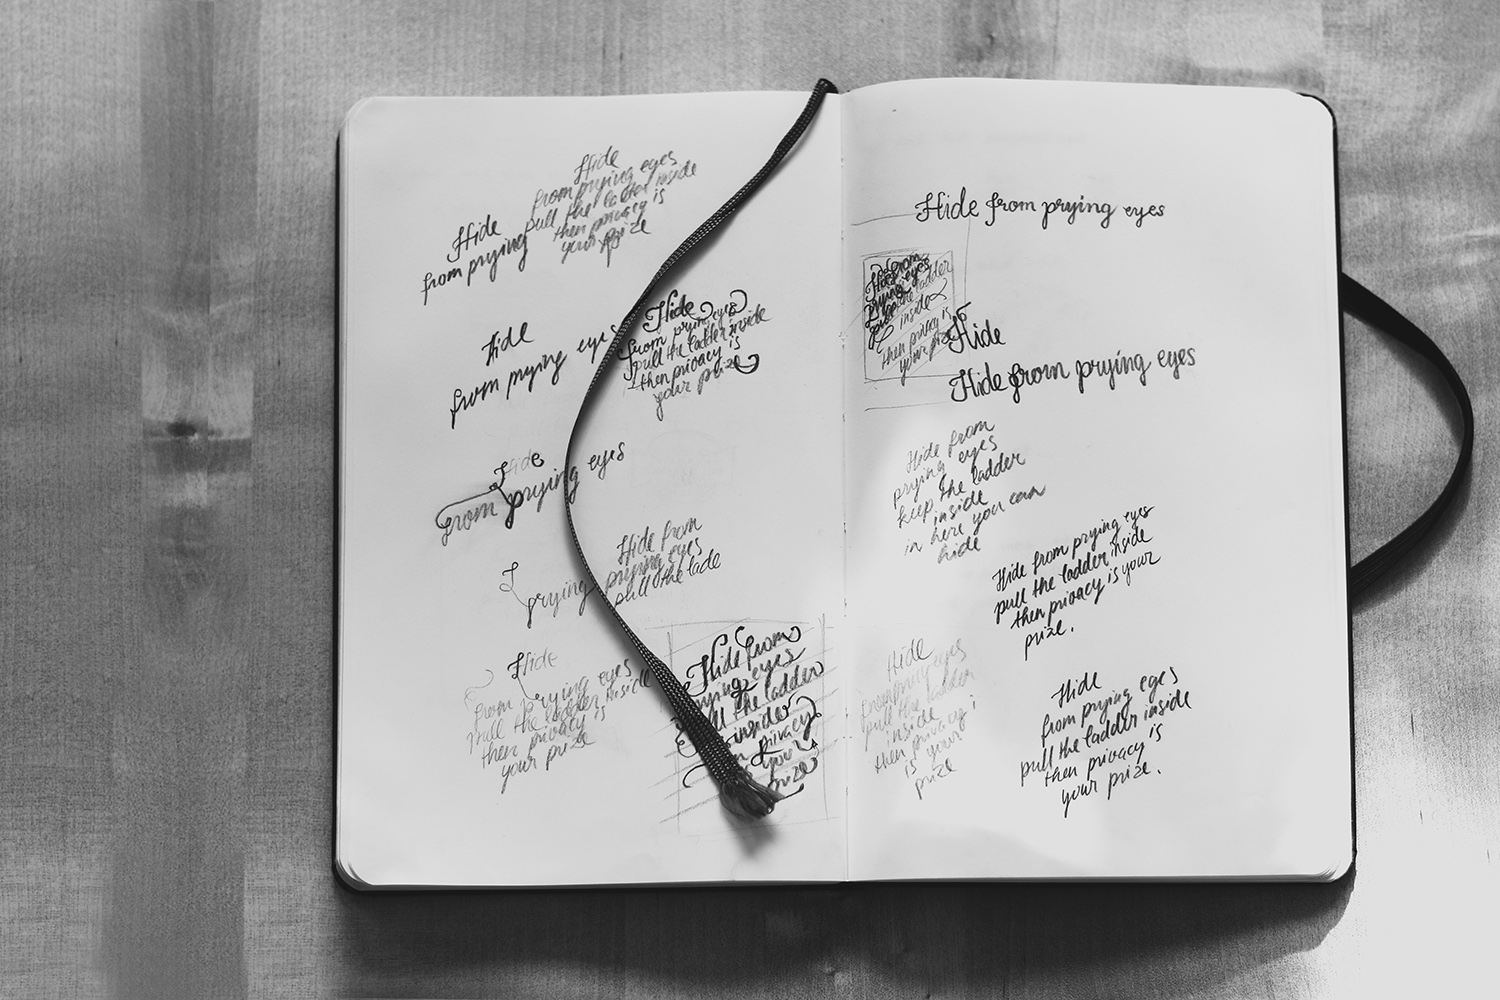 Hide
from prying eyes
pull the ladder inside
then privacy is
your prize
Hide
from prying
Hide
from prying eyes
Hide
from prying eyes
pull the ladder inside
then privacy is
your prize
Hide
from prying eyes
Hide from
prying eyes
pull the lade
prying
Hide
from prying eyes
pull the ladder inside
then privacy is
your prize
Hide from
prying eyes
the ladder
inside
privacy
your
prize
Hide from prying eyes
Hide from
prying eyes
the ladder
inside
then privacy is
your prize
Hide
Hide from prying eyes
Hide from
prying eyes
keep the ladder
inside
in here you can
hide
Hide from prying eyes
pull the ladder inside
then privacy is your
prize.
Hide
from prying eyes
pull the ladder
inside
then privacy
is your
prize
Hide
from prying eyes
pull the ladder inside
then privacy is
your prize.